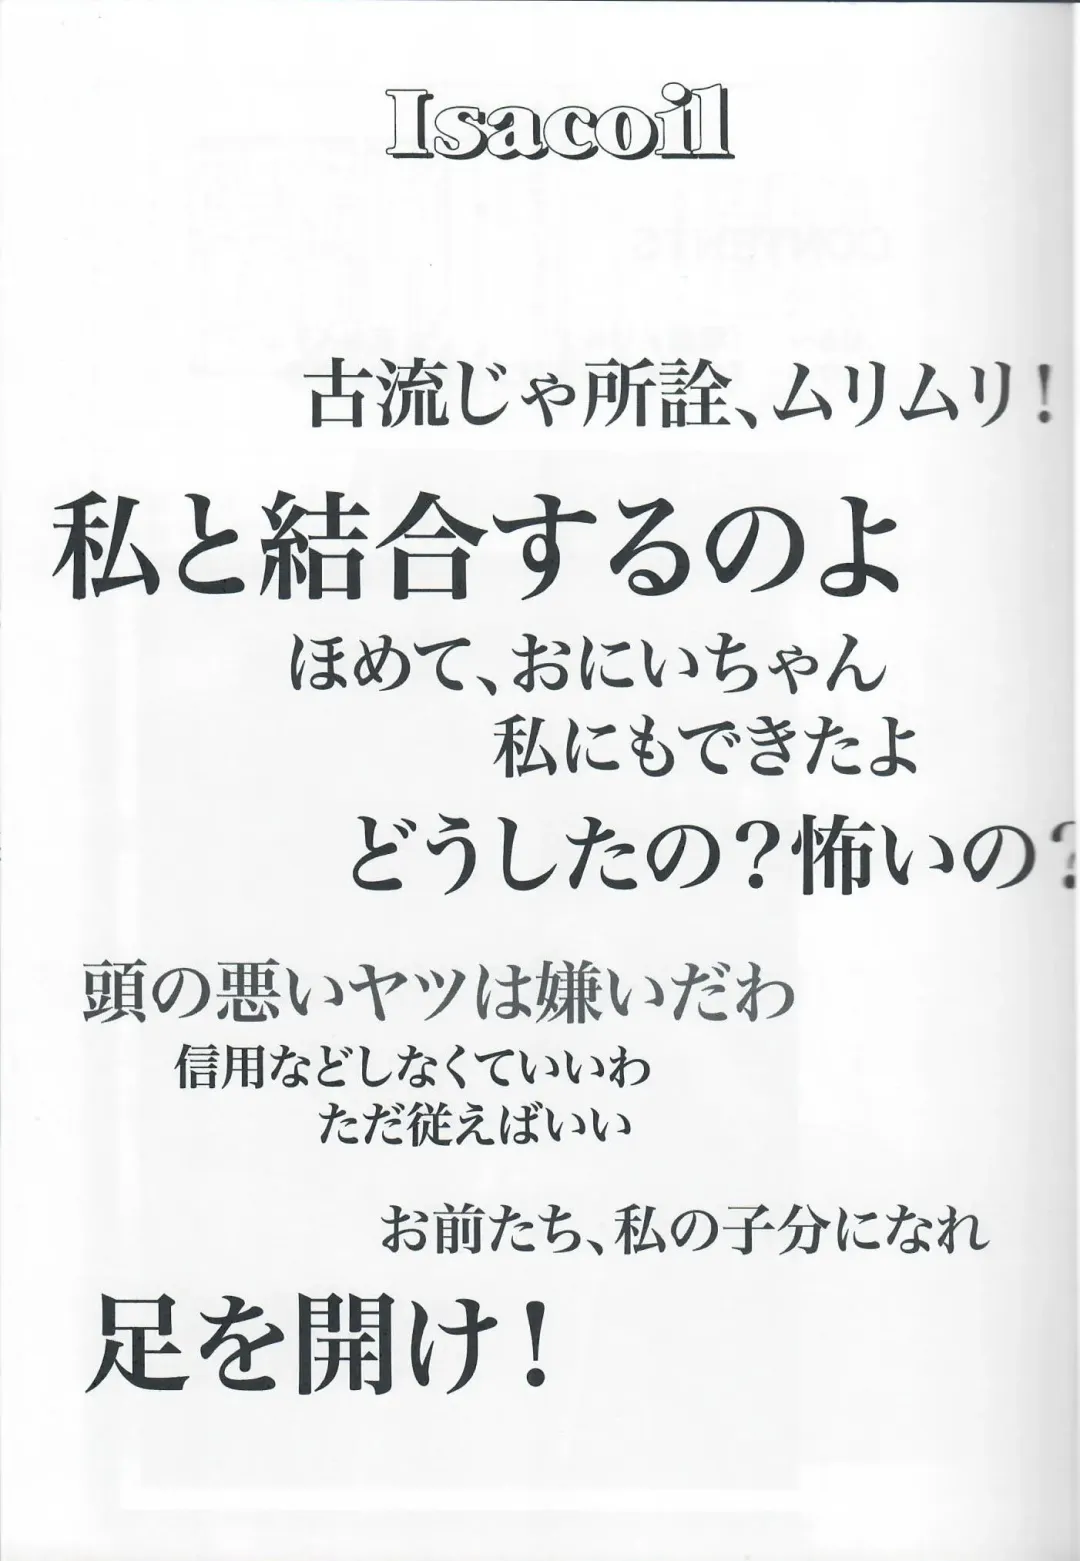 Isacoil
古流じゃ所詮、ムリムリ！
私と結合するのよ
ほめて、おにいちゃん
私にもできたよ
どうしたの？怖いの？
頭の悪いヤツは嫌いだわ
信用などしなくていいわ
ただ従えばいい
お前たち、私の子分になれ
足を開け！